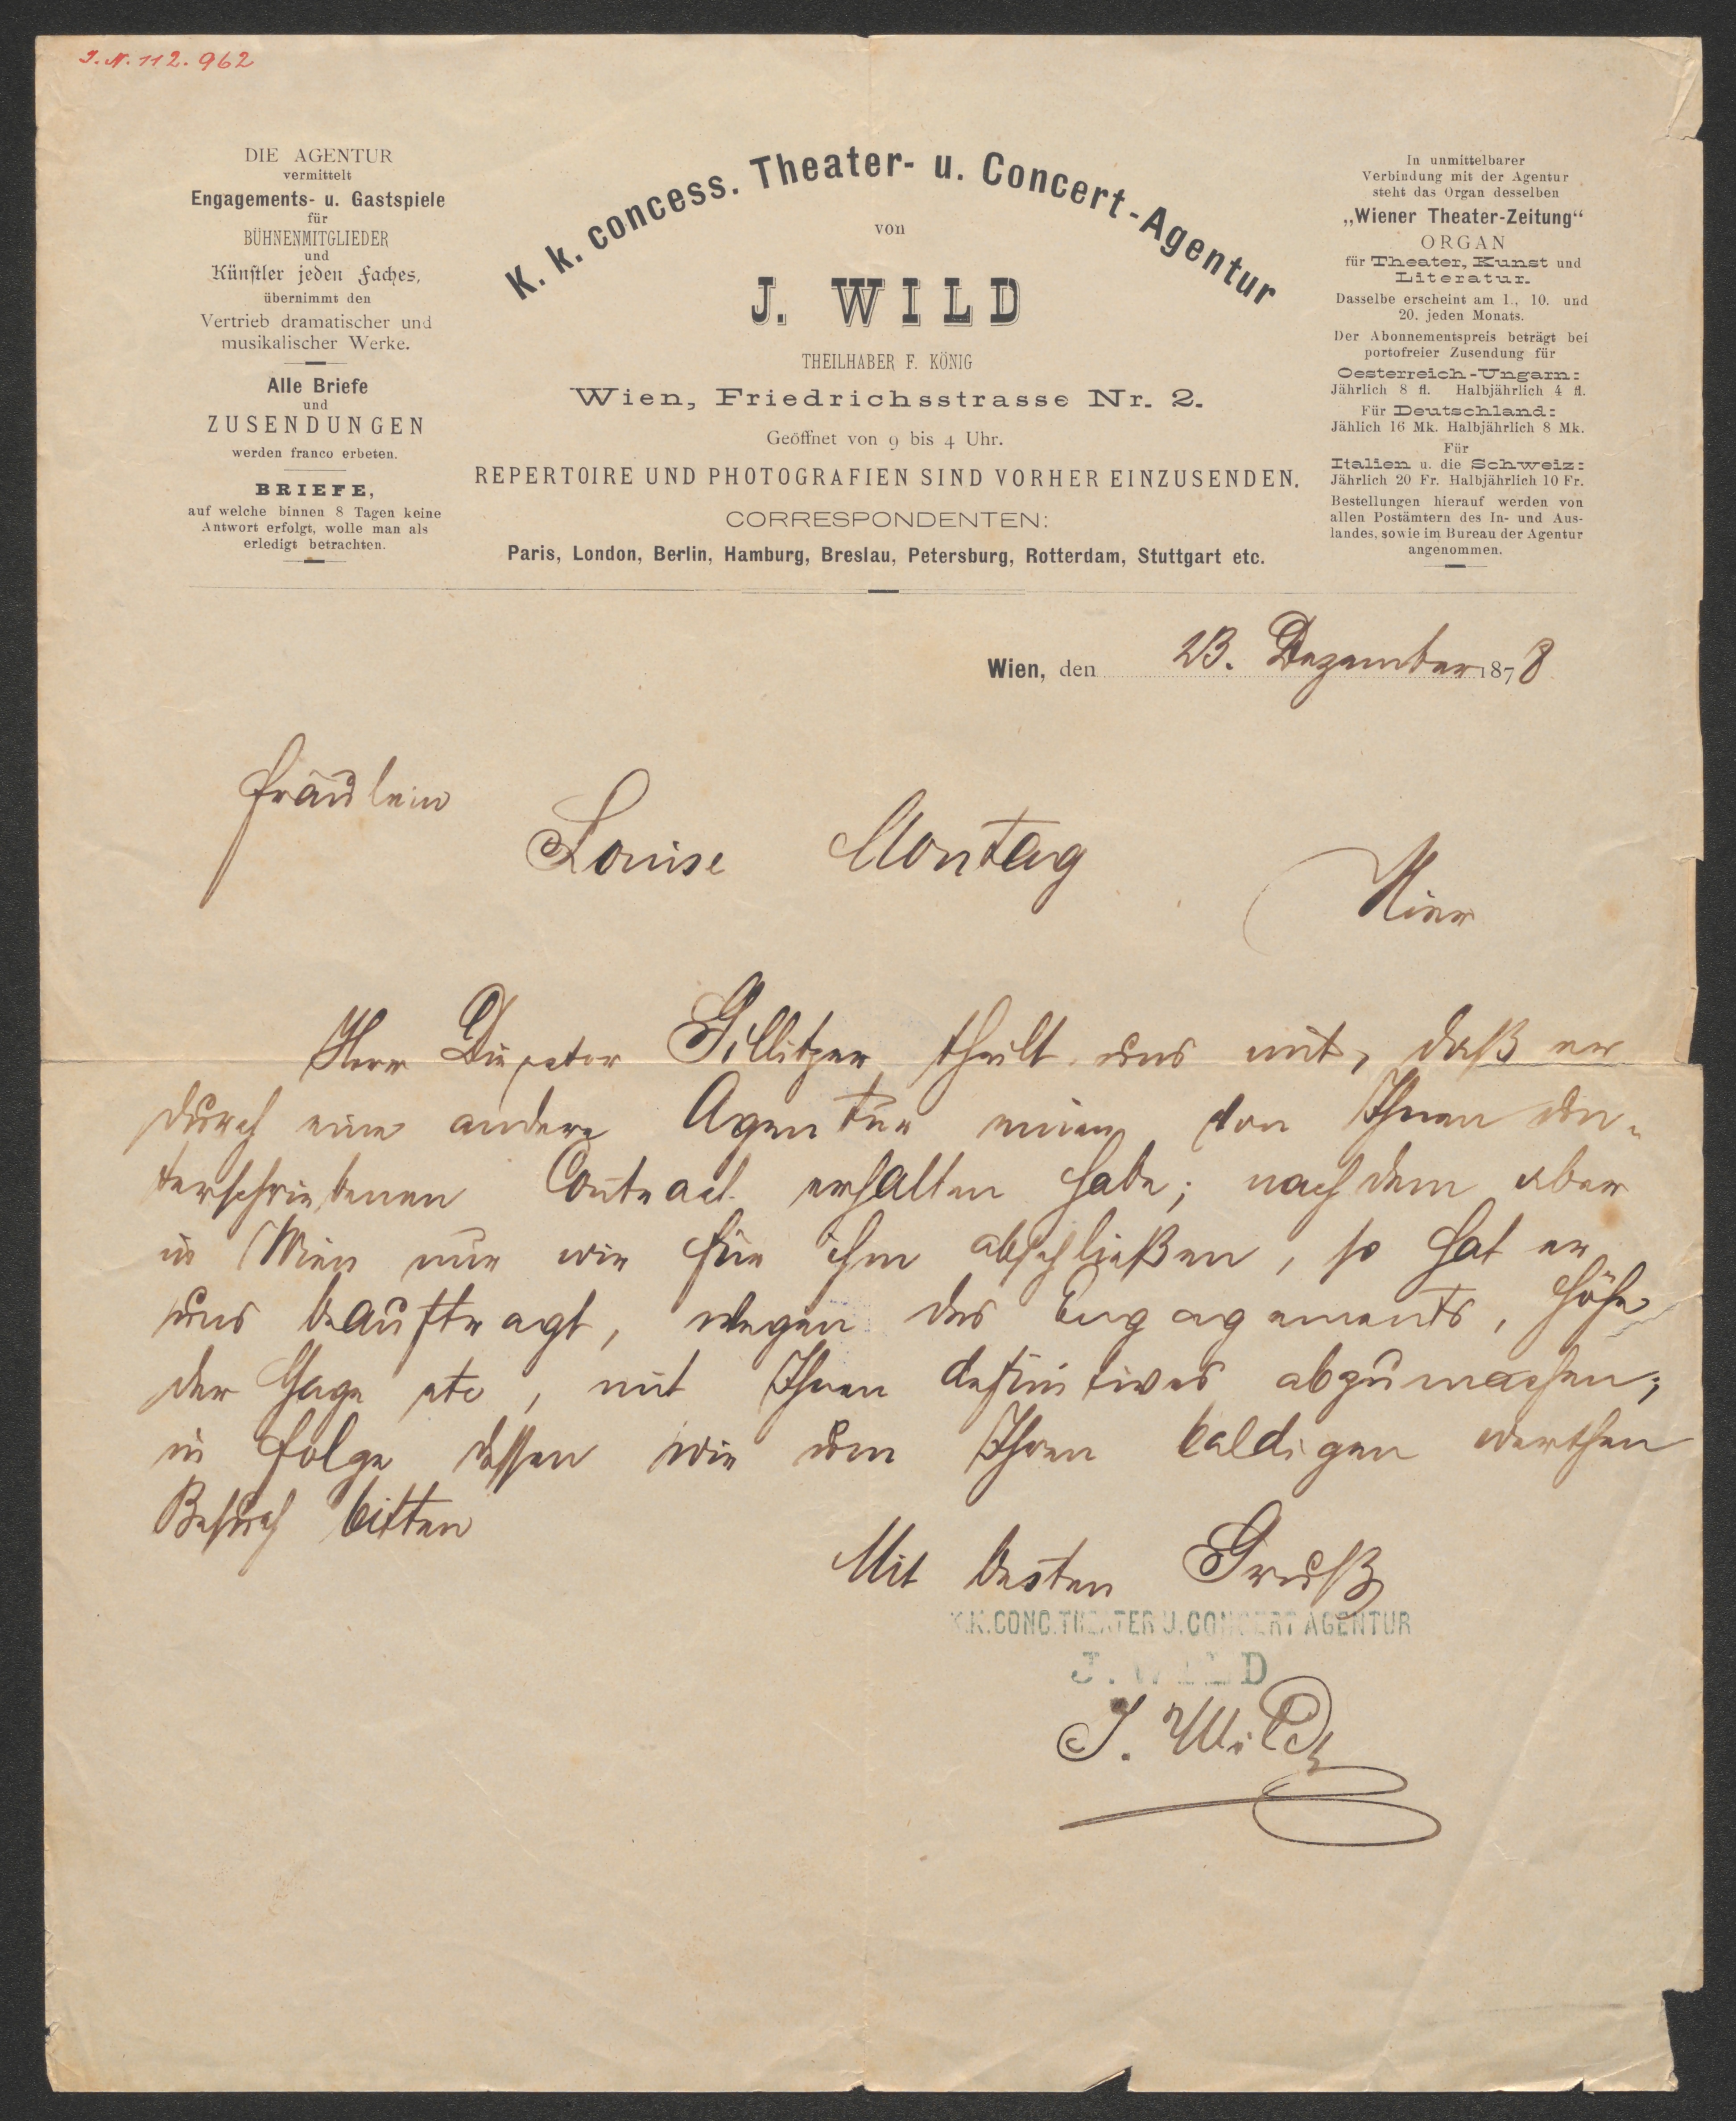 J. N. 112. 962
DIE AGENTUR
vermittelt
Engagements- u. Gastspiele
für
BÜHNENMITGLIEDER
und
Künstler jeden Faches,
übernimmt den
Vertrieb dramatischer und
musikalischer Werke.
Alle Briefe
und
ZUSENDUNGEN
werden franco erbeten.
BRIEFE,
auf welche binnen 8 Tagen keine
Antwort erfolgt, wolle man als
erledigt betrachten.
K. k. concess. Theater- u. Concert-Agentur
von
J. WILD
THEILHABER F. KÖNIG
Wien, Friedrichsstrasse Nr. 2.
Geöffnet von 9 bis 4 Uhr.
REPERTOIRE UND PHOTOGRAFIEN SIND VORHER EINZUSENDEN.
CORRESPONDENTEN:
Paris, London, Berlin, Hamburg, Breslau, Petersburg, Rotterdam, Stuttgart etc.
In unmittelbarer
Verbindung mit der Agentur
steht das Organ desselben
„Wiener Theater-Zeitung“
ORGAN
für Theater, Kunst und
Literatur.
Dasselbe erscheint am 1., 10. und
20. jeden Monats.
Der Abonnementspreis beträgt bei
portofreier Zusendung für
Oesterreich-Ungarn:
Jährlich 8 fl. Halbjährlich 4 fl.
Für Deutschland:
Jählich 16 Mk. Halbjährlich 8 Mk.
Für
Italien u. die Schweiz:
Jährlich 20 Fr. Halbjährlich 10 Fr.
Bestellungen hierauf werden von
allen Postämtern des In- und Aus-
landes, sowie im Bureau der Agentur
angenommen.
Wien, den 23. Dezember 1878
Fräulein
Louise Montag
Hier
Herr Director Gillitzer theilt uns mit, daß er
durch eine andere Agentur einen von Ihnen un-
terschriebenen Contract erhalten habe; nachdem aber
in Wien nur wir für ihm abschließen, so hat er
uns beauftragt, wegen des Engagements, Höhe
der Gage etc, mit Ihnen definitives abzumachen;
in Folge dessen wir um Ihren baldigen werthen
Besuch bitten
Mit besten Gruß
K.K.CONC.THEATER U.CONCERT AGENTUR
J. WILD
J. Wild